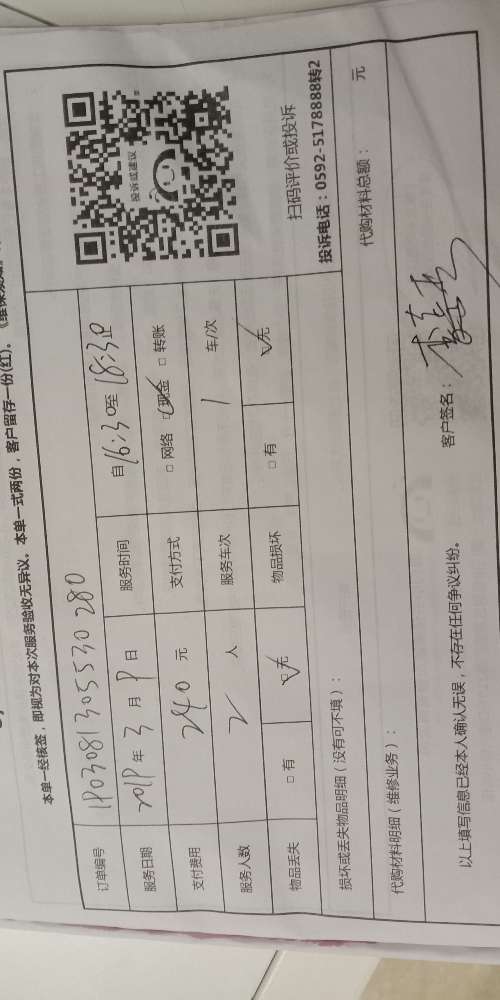 本单一经核签，即视为对本次服务验收无异议。本单一式两份，客户留存一份(红)。
订单编号 1903081305530280
服务日期 2019年3月9日 服务时间 自16:30至18:30
支付费用 240元 支付方式 □网络 ☑现金 □转账
服务人数 2人 服务车次 1车/次
物品丢失 □有 ☑无 物品损坏 □有 ☑无
投诉或建议
扫码评价或投诉
投诉电话：0592-5178888转2
损坏或丢失物品明细（没有可不填）：
代购材料明细（维修业务）： 代购材料总额： 元
以上填写信息已经本人确认无误，不存在任何争议纠纷。 客户签名：